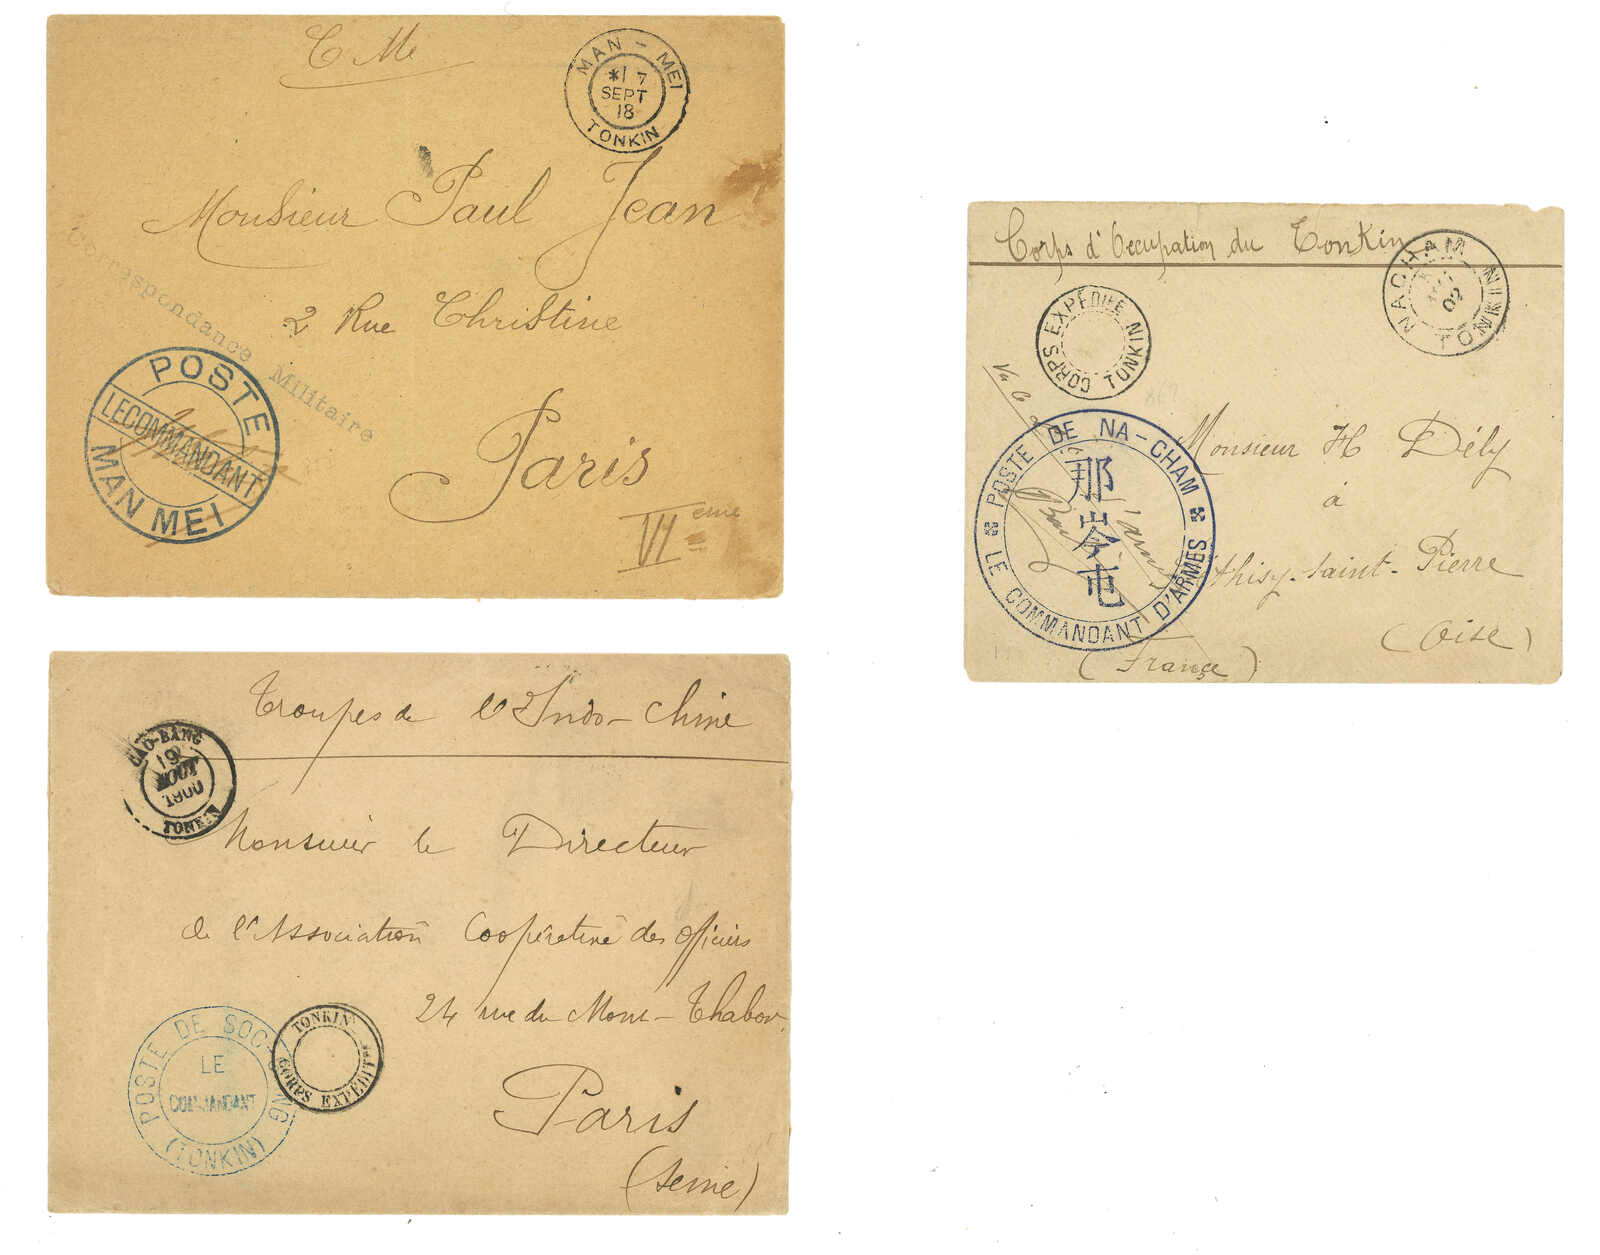 C Me
MAN - MEI
* 1 7
SEPT
18
TONKIN
Monsieur Paul Jean
2 Rue Christine
Paris
VI eme
Correspondance Militaire
POSTE
LE COMMANDANT
MAN MEI
Corps d'Occupation du Tonkin
NACHAM
02
TONKIN
CORPS EXPÉDIRE TONKIN
POSTE DE NA-CHAM
那岑屯
LE COMMANDANT D'ARMES
Monsieur H Dély
à
Athisy-Saint-Pierre
(Oise)
(France)
Troupes de l'Indo-Chine
CAO-BANG
19
AOUT
1900
TONKIN
Monsieur le Directeur
de l'Association Coopérative des Officiers
24 rue du Mont-Thabor
Paris
(Seine)
POSTE DE SOC- NG
LE
COMMANDANT
(TONKIN)
TONKIN
CORPS EXPÉDITRE